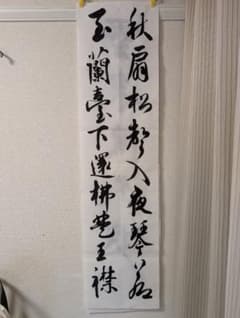 秋扇松聲入夜琴若
至蘭臺下還拂楚王襟